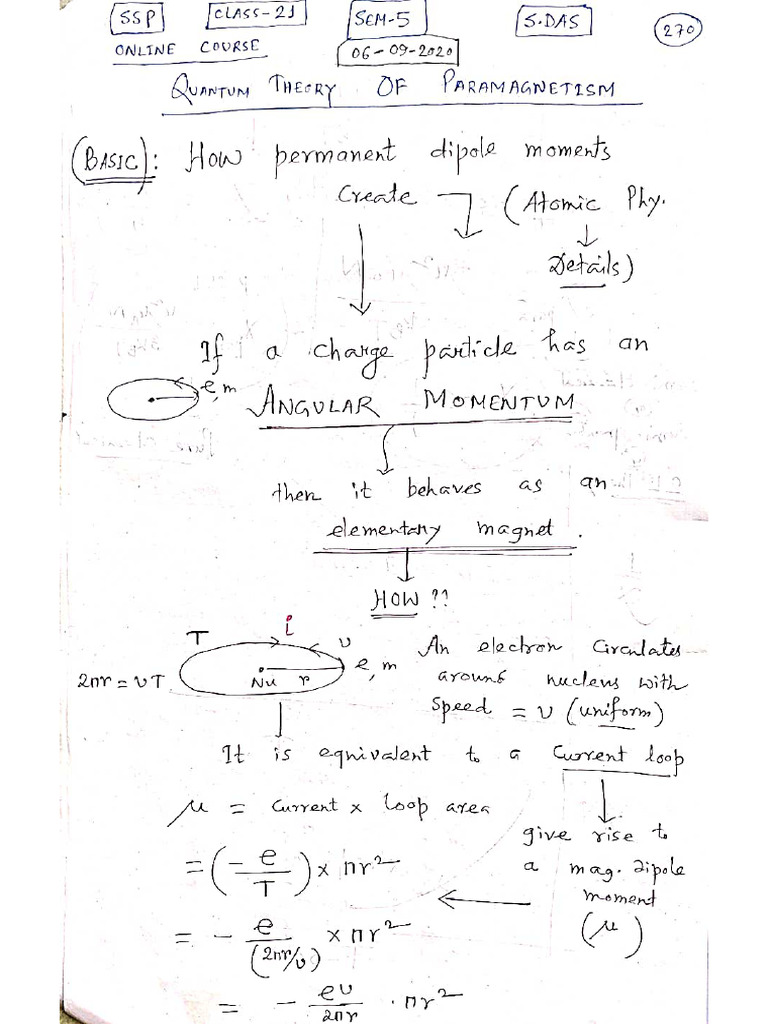 SSP CLASS-21 SEM-5 S.DAS 270
ONLINE COURSE 06-09-2020
QUANTUM THEORY OF PARAMAGNETISM
(BASIC): How permanent dipole moments
Create (Atomic Phy.
Details)
If a charge particle has an
e, m ANGULAR MOMENTUM
then it behaves as an
elementary magnet.
HOW ??
T i υ An electron Circulates
2πr = υT. Nu r e, m around nucleus with
Speed = υ (uniform)
It is equivalent to a Current loop
μ = Current x loop area
give rise to
= (-e/T) x πr²
a mag. dipole
moment
= - e/(2πr/υ) x πr²
(μ)
= - eυ/2πr . πr²